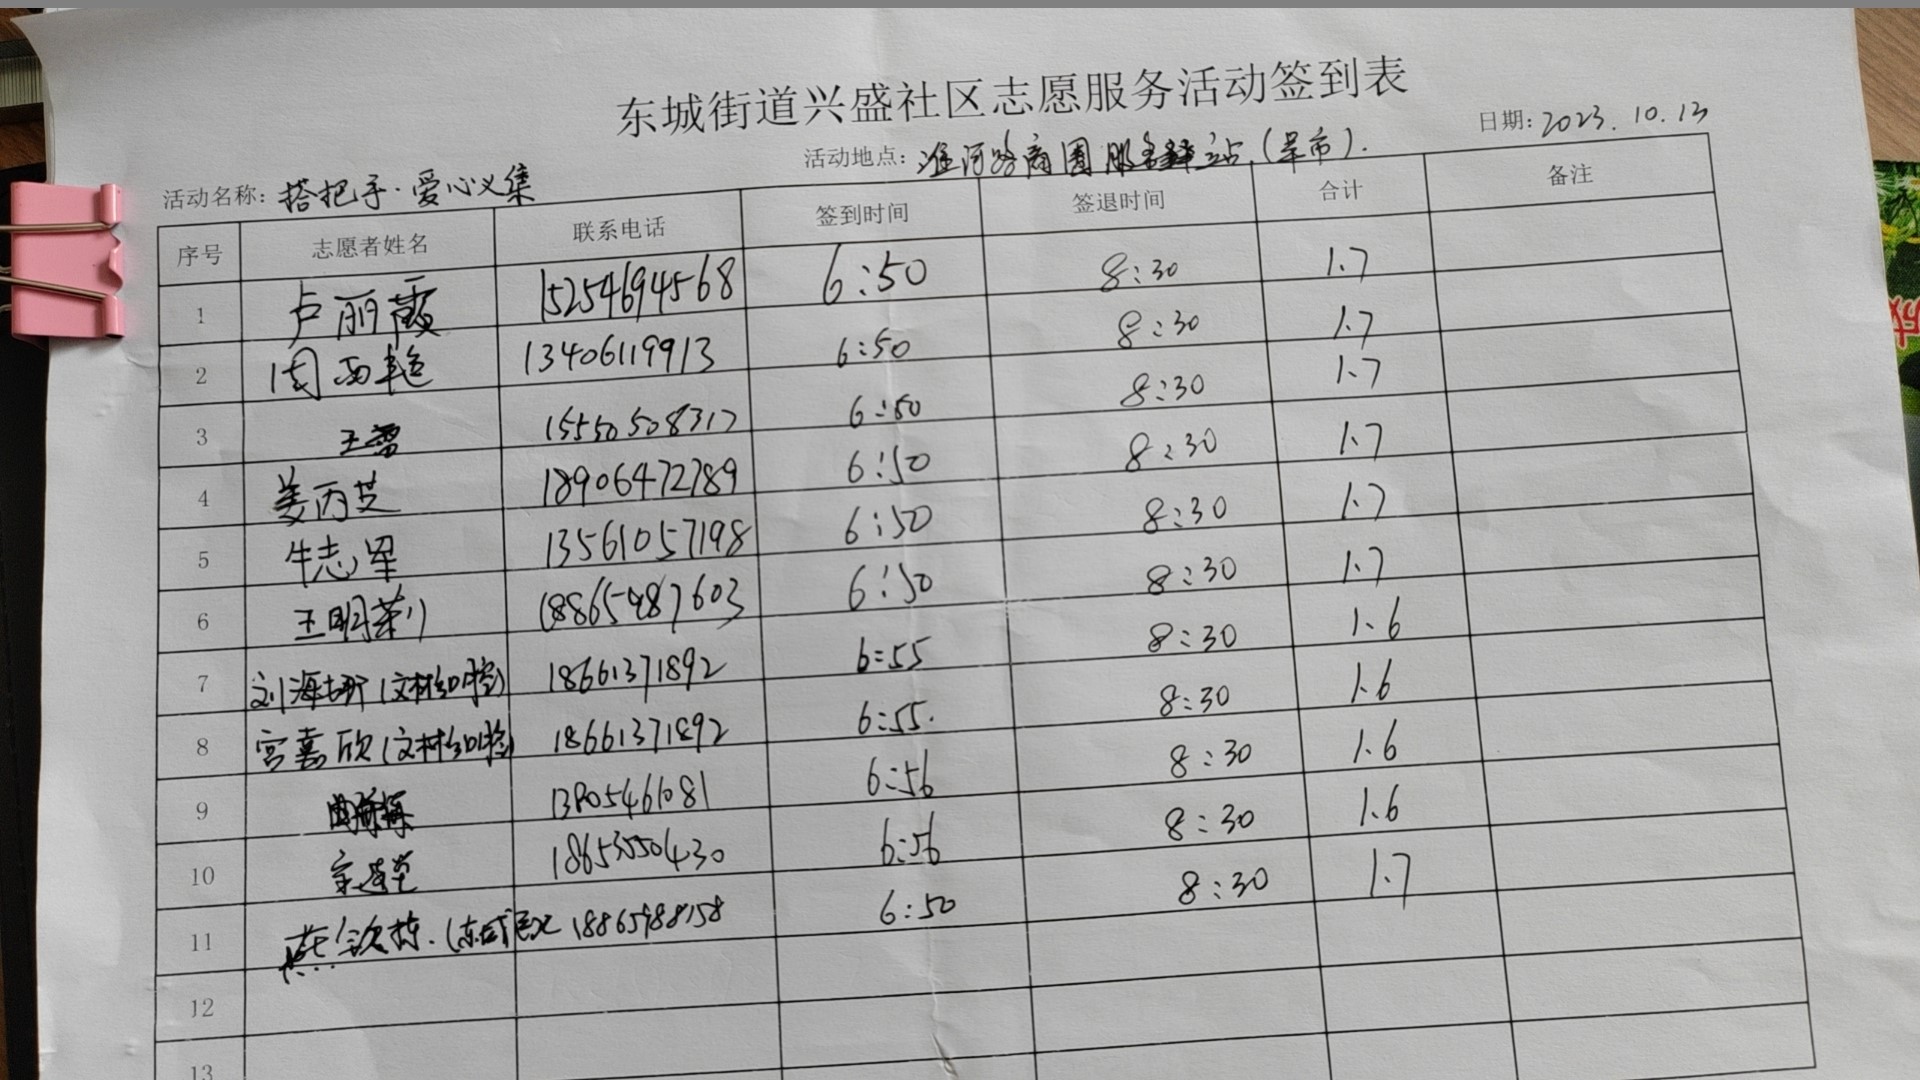 东城街道兴盛社区志愿服务活动签到表
活动名称：搭把手·爱心义集 活动地点：淮河路商圈服务驿站（早市）. 日期：2023.10.13
序号 志愿者姓名 联系电话 签到时间 签退时间 合计 备注
1 卢丽霞 15254694568 6:50 8:30 1.7
2 周西艳 13406119913 6:50 8:30 1.7
3 王雪 15550508317 6:50 8:30 1.7
4 姜丙芝 18906472789 6:50 8:30 1.7
5 牛志军 13561057198 6:50 8:30 1.7
6 王明荣 18865487603 6:50 8:30 1.7
7 刘海妍 18661371892 6:55 8:30 1.6
8 宫嘉欣 18661371892 6:55. 8:30 1.6
9 13805461081 6:56 8:30 1.6
10 18653550430 6:56 8:30 1.6
11 燕钦栋.（东城 18865988158 6:50 8:30 1.7
12
13